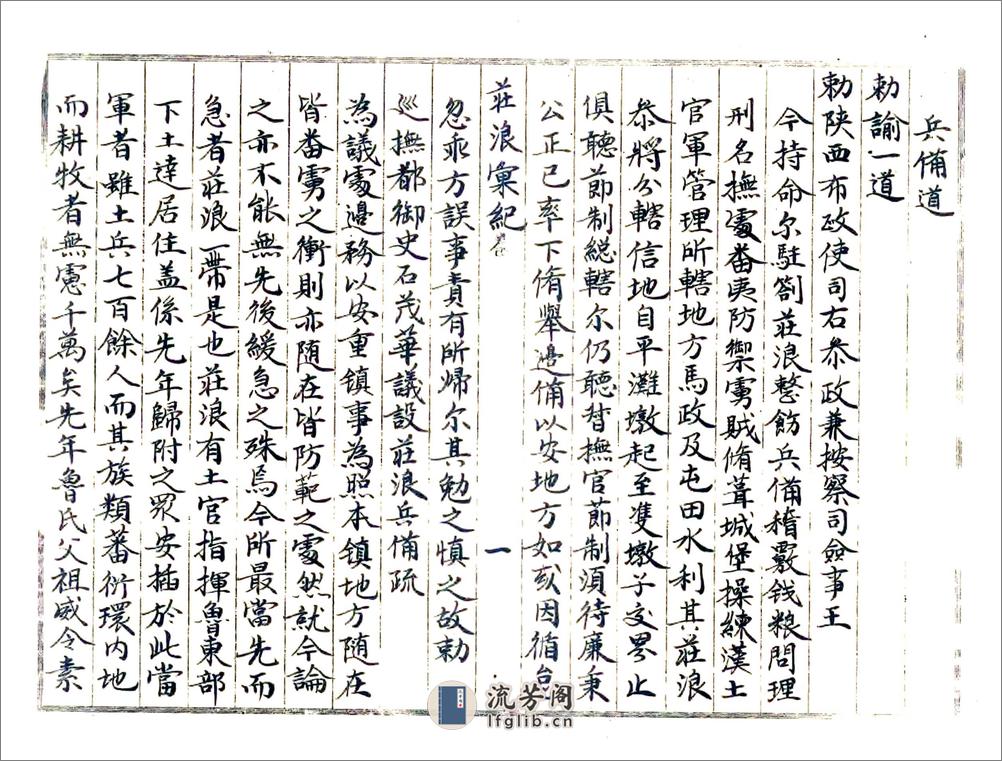 兵備道
勅諭一道
勅陝西布政使司右叅政兼按察司僉事王
今持命尔駐劄莊浪整飭兵備稽覈钱粮問理
刑名撫䖏畨夷防禦虜賊脩葺城堡操練漢土
官軍管理所轄地方馬政及屯田水利其莊浪
叅將分轄信地自平灘墩起至雙墩子交界止
俱聽莭制総轄尔仍聽督撫官莭制湏待廉秉
公正已率下脩舉邉俻以安地方如或因循怠
莊浪彙紀 卷一
忽乖方誤事責有所歸尔其勉之慎之故勅
巡撫都御史石茂華議設莊浪兵俻疏
為議䖏邊務以安重镇事為照本镇地方随在
皆畨虜之衝則亦随在皆防範之䖏然就今論
之亦不能無先後緩急之殊焉今所最當先而
急者莊浪一帶是也莊浪有土官指揮魯東部
下土達居住盖係先年歸附之眾安插於此當
軍者雖土兵七百餘人而其族類蕃衍環内地
而耕牧者無慮千萬矣先年魯氏父祖威令素
流芳阁
lfglib.cn